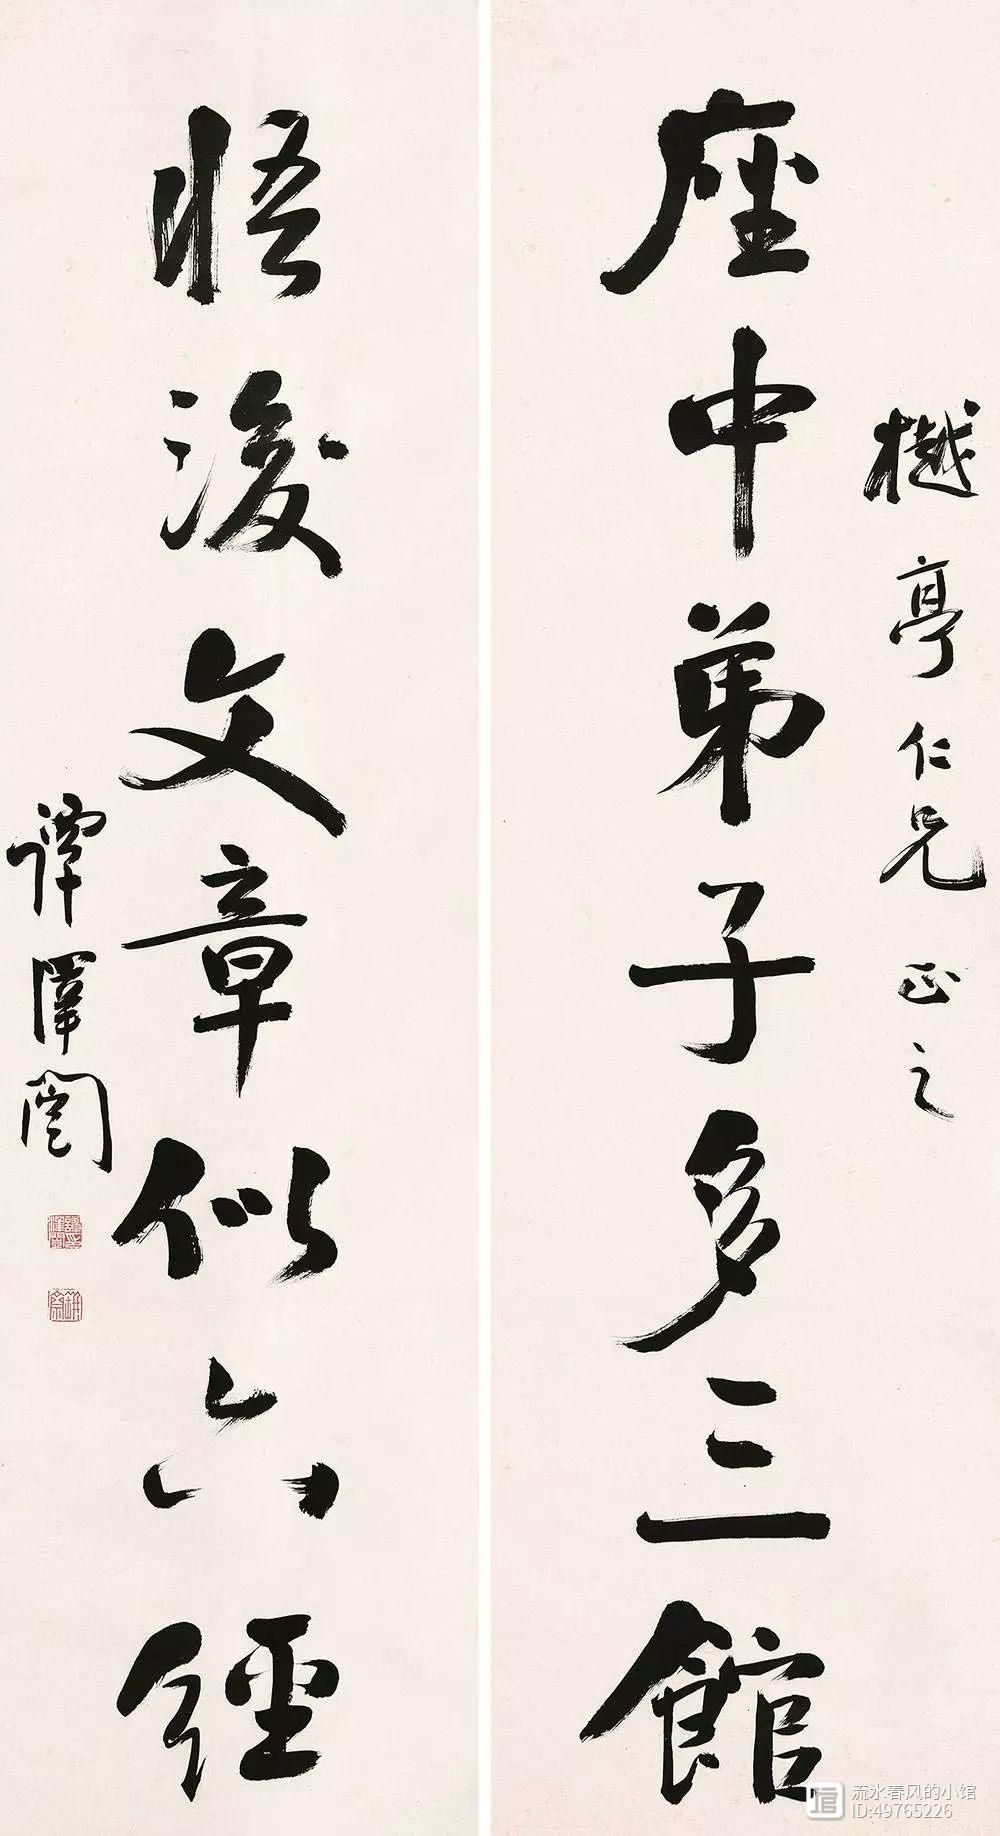 樾亭仁兄正之
座中弟子多三館
悟後文章似六經
譚澤闓
流水春风的小馆
ID:49765226